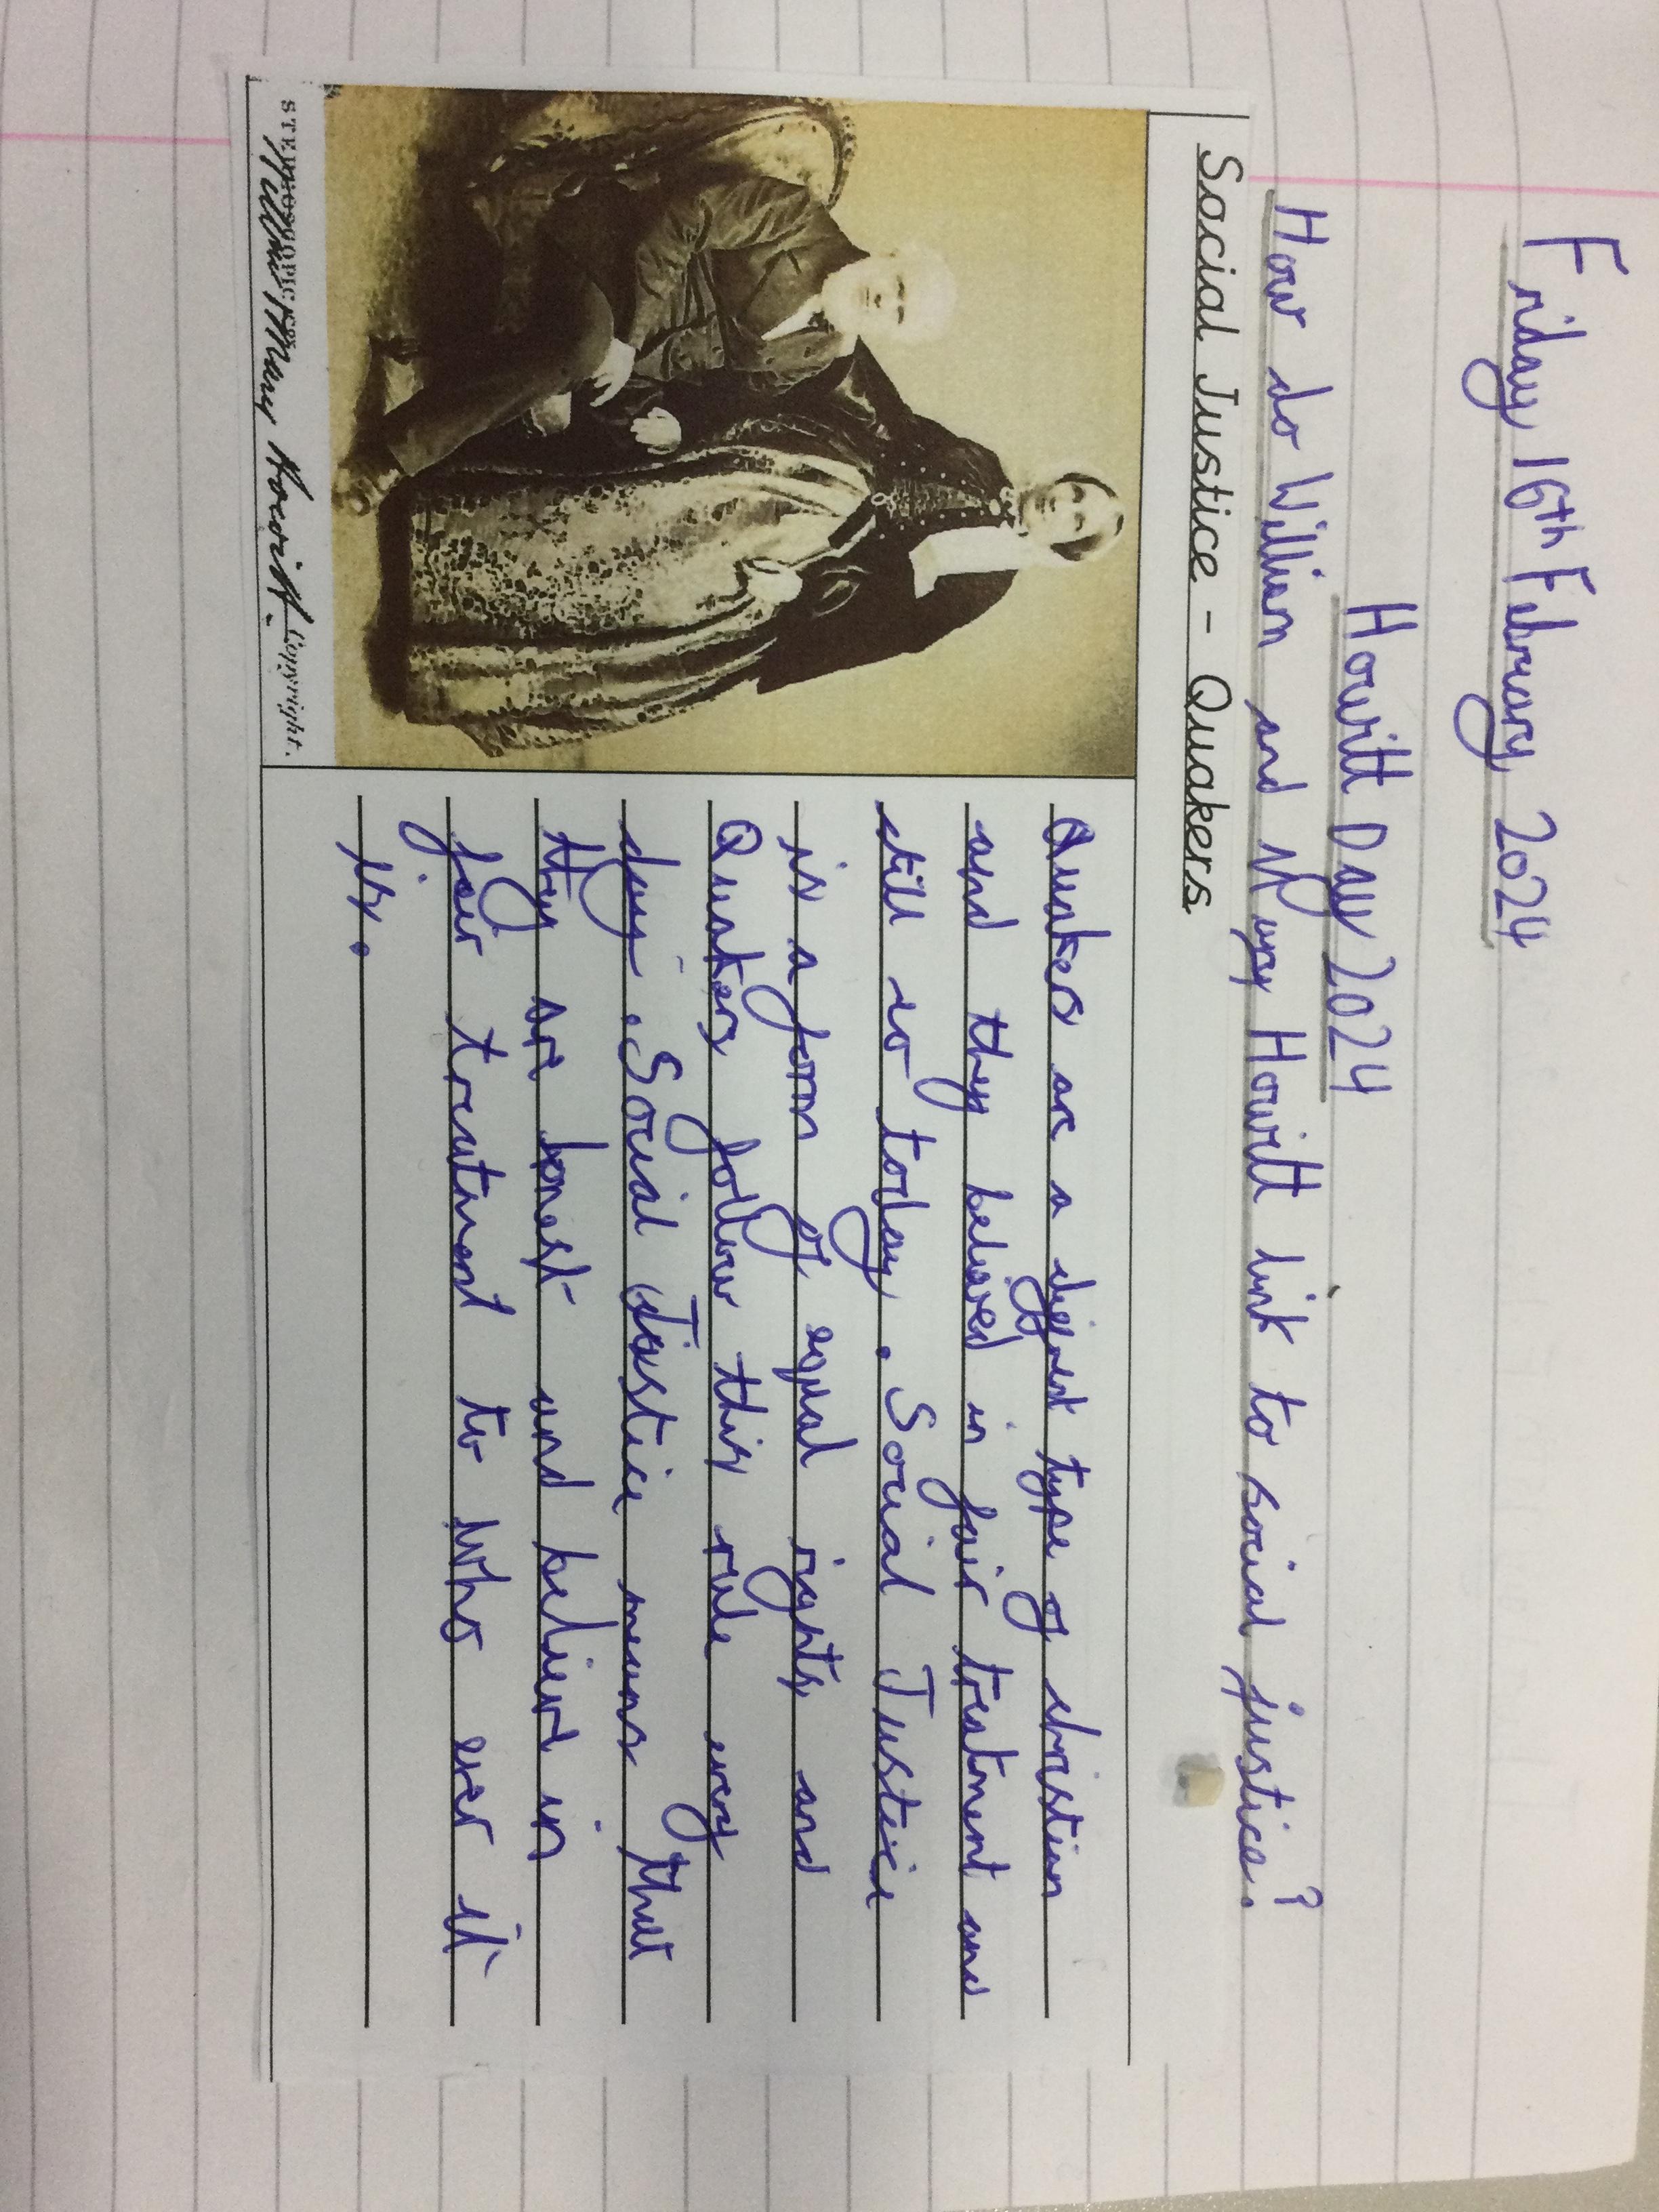 Friday 16th February 2024
Howitt Day 2024
How do William and Mary Howitt link to social justice?
Social Justice - Quakers
Quakers are a diffrent type of christian
and they beleived in fair treatment and
still so today. Social Justice
is a form of equal rights and
Quakers follow this rule every
day. Social Justice means that
they are honest and believe in
fair treatment to who ever it
is.
STEREOSCOPIC Co. Copyright.
William & Mary Howitt.